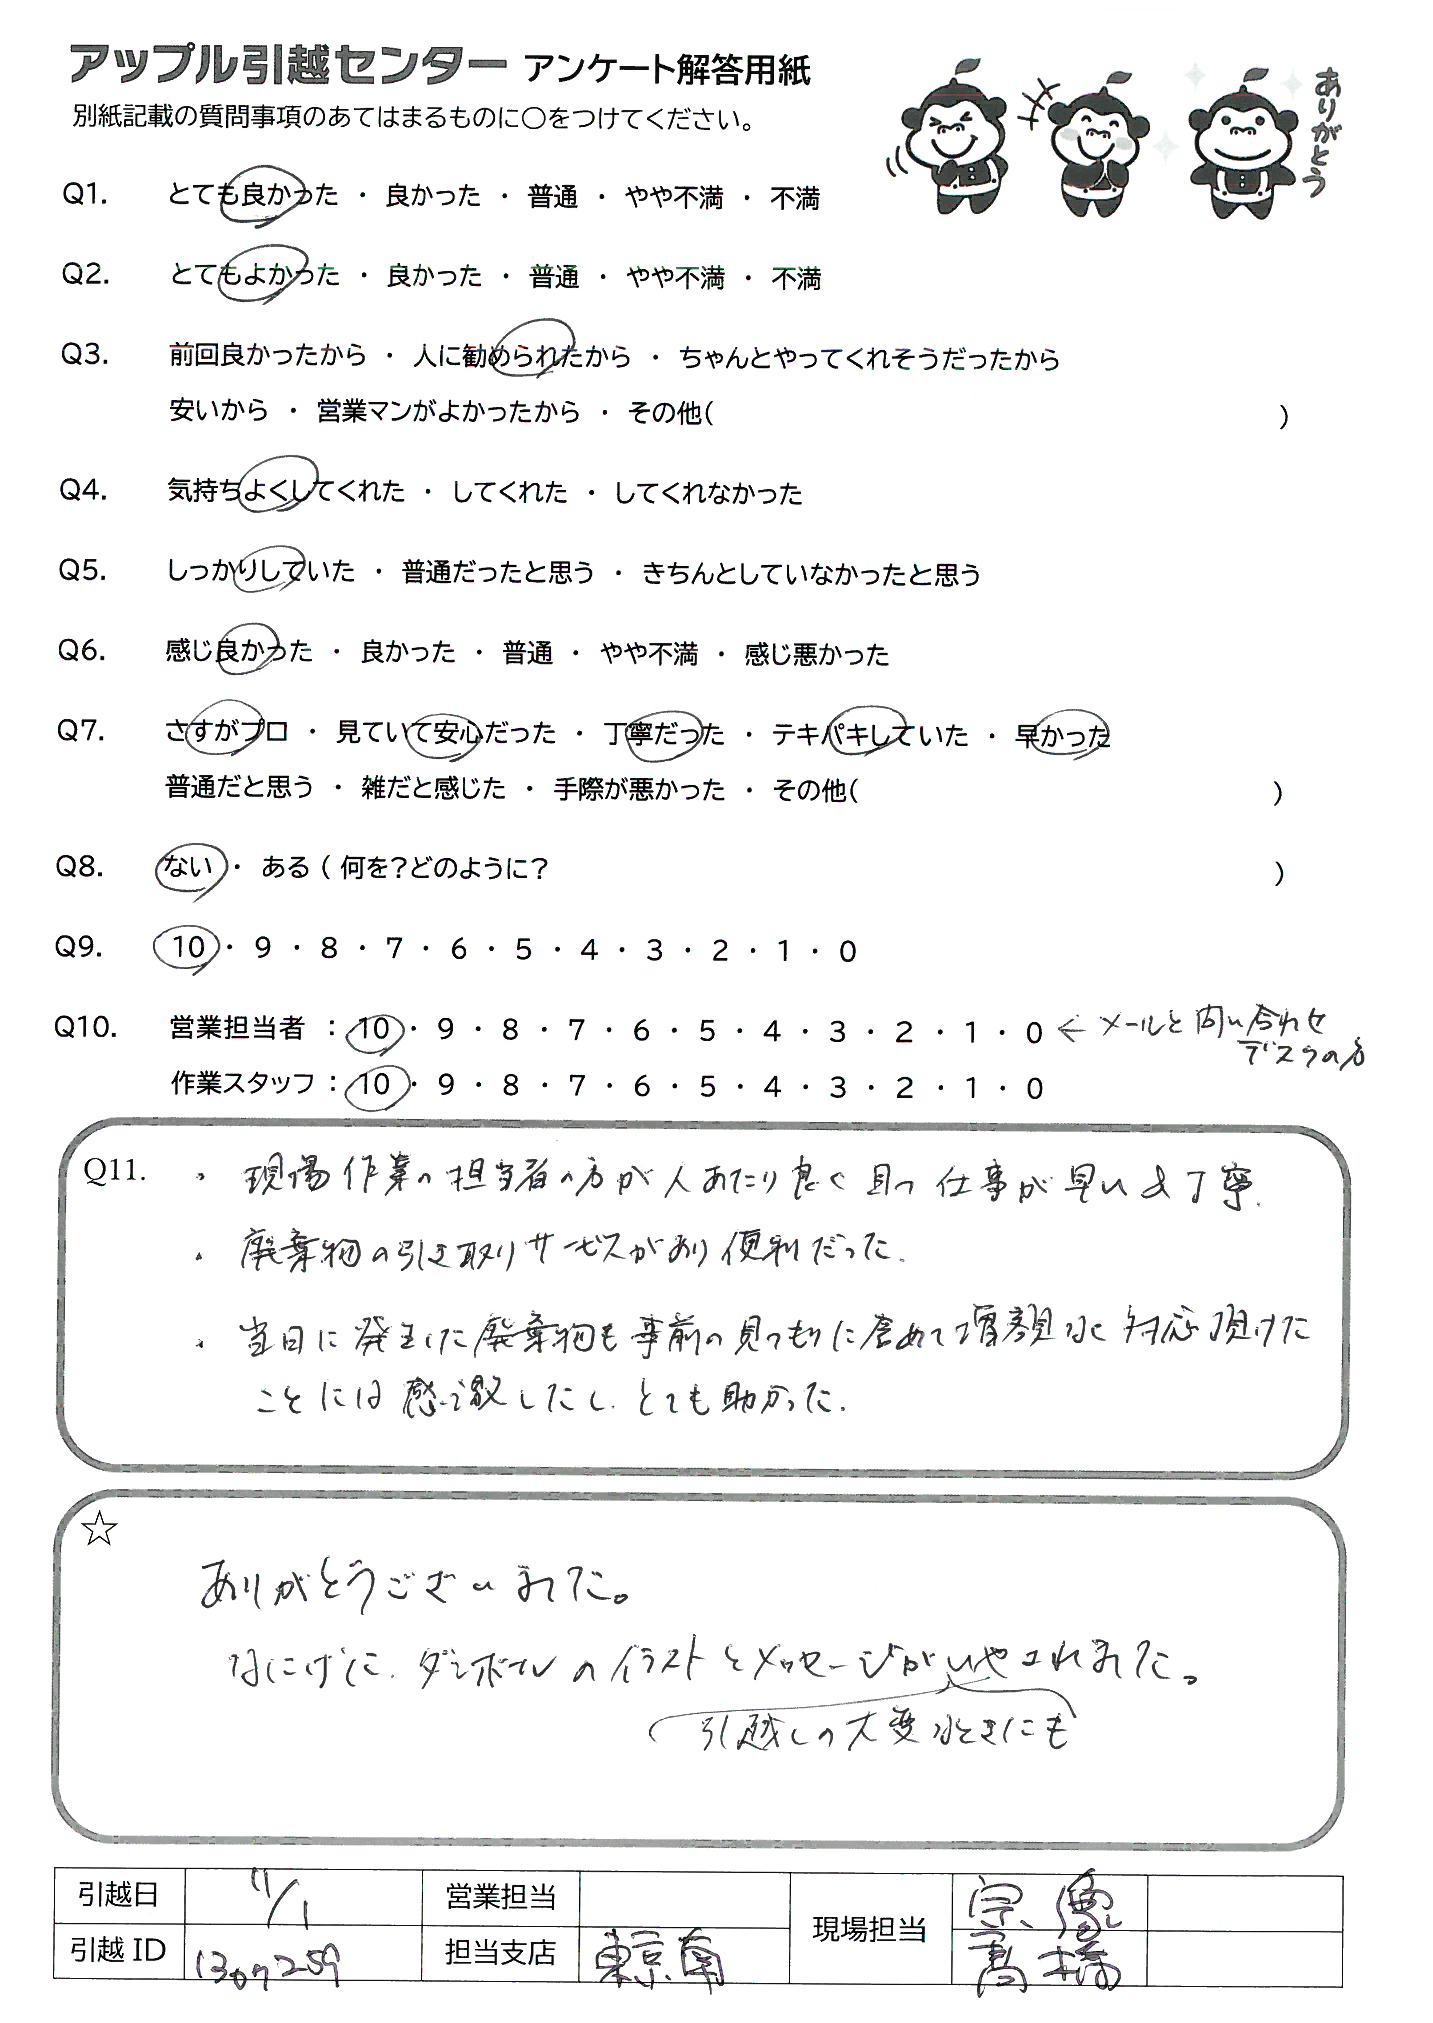 アップル引越センター アンケート解答用紙
別紙記載の質問事項のあてはまるものに○をつけてください。
ありがとう
Q1. とても良かった ・ 良かった ・ 普通 ・ やや不満 ・ 不満
Q2. とてもよかった ・ 良かった ・ 普通 ・ やや不満 ・ 不満
Q3. 前回良かったから ・ 人に勧められたから ・ ちゃんとやってくれそうだったから
安いから ・ 営業マンがよかったから ・ その他( )
Q4. 気持ちよくしてくれた ・ してくれた ・ してくれなかった
Q5. しっかりしていた ・ 普通だったと思う ・ きちんとしていなかったと思う
Q6. 感じ良かった ・ 良かった ・ 普通 ・ やや不満 ・ 感じ悪かった
Q7. さすがプロ ・ 見ていて安心だった ・ 丁寧だった ・ テキパキしていた ・ 早かった
普通だと思う ・ 雑だと感じた ・ 手際が悪かった ・ その他( )
Q8. ない ・ ある ( 何を?どのように? )
Q9. 10 ・ 9 ・ 8 ・ 7 ・ 6 ・ 5 ・ 4 ・ 3 ・ 2 ・ 1 ・ 0
Q10. 営業担当者 : 10 ・ 9 ・ 8 ・ 7 ・ 6 ・ 5 ・ 4 ・ 3 ・ 2 ・ 1 ・ 0 ← メールと問い合わせ
デスクの方
作業スタッフ : 10 ・ 9 ・ 8 ・ 7 ・ 6 ・ 5 ・ 4 ・ 3 ・ 2 ・ 1 ・ 0
Q11. ・ 現場作業の担当者の方が人あたり良く且つ仕事が早い&丁寧.
・ 廃棄物の引き取りサービスがあり便利だった.
・ 当日に発生した廃棄物も事前の見つもりに含めて増額なく対応頂けた
ことには感激したし、とても助かった.
☆
ありがとうございました。
なにげに、ダンボールのイラストとメッセージがいやされました。
引越しの大変なときにも
引越日 11/1 営業担当 現場担当 宗像
引越ID 1307259 担当支店 東京南 高橋